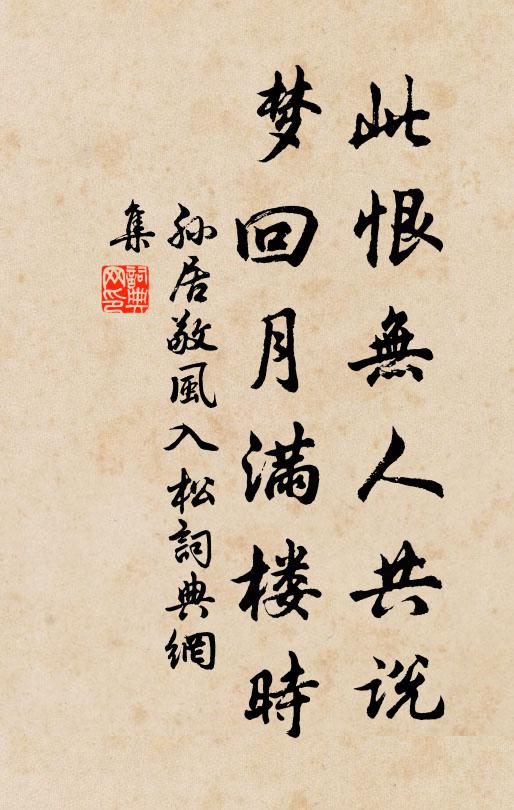 此恨無人共说
梦回月满楼時
孙居敬風入松詞典網
集
詞典网印